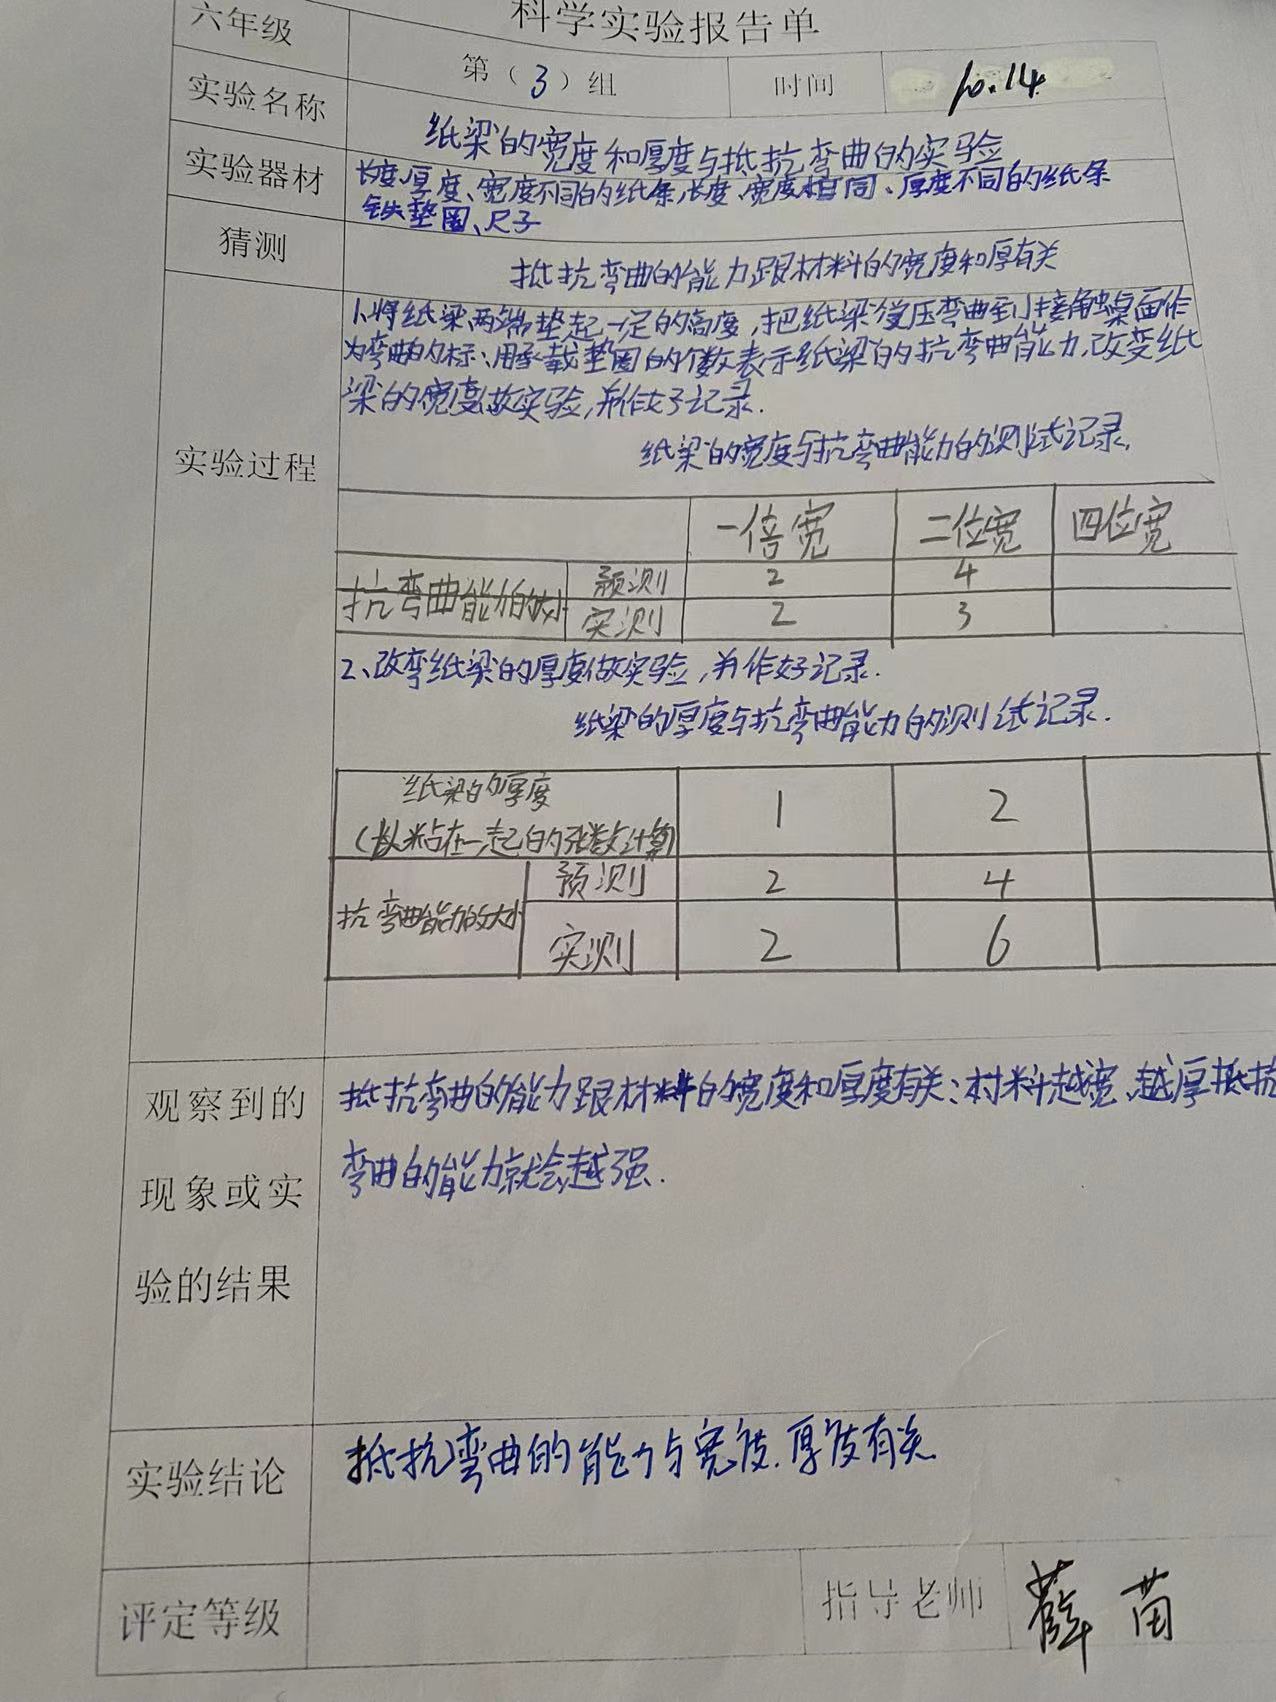 科学实验报告单
六年级
第（3）组 时间 10.14
实验名称
纸梁的宽度和厚度与抵抗弯曲的实验
实验器材
长度、厚度、宽度不同的纸条,长度、宽度相同、厚度不同的纸条
铁垫圈、尺子
猜测
抵抗弯曲的能力跟材料的宽度和厚有关
实验过程
1、将纸梁两端垫起一定的高度,把纸梁受压弯曲到接触桌面作
为弯曲的标;用承载垫圈的个数表示纸梁的抗弯曲能力,改变纸
梁的宽度做实验,并作好记录.
纸梁的宽度与抗弯曲能力的测试记录,
一倍宽 二位宽 四位宽
抗弯曲能力的大小 预测 2 4
实测 2 3
2、改弯纸梁的厚度做实验,并作好记录.
纸梁的厚度与抗弯曲能力的测试记录.
纸梁的厚度 1 2
(以粘在一起的张数计算)
抗弯曲能力的大小 预测 2 4
实测 2 6
观察到的
现象或实
验的结果
抵抗弯曲的能力跟材料的宽度和厚度有关;材料越宽、越厚抵抗
弯曲的能力就会越强.
实验结论
抵抗弯曲的能力与宽度.厚度有关
评定等级 指导老师 薛苗